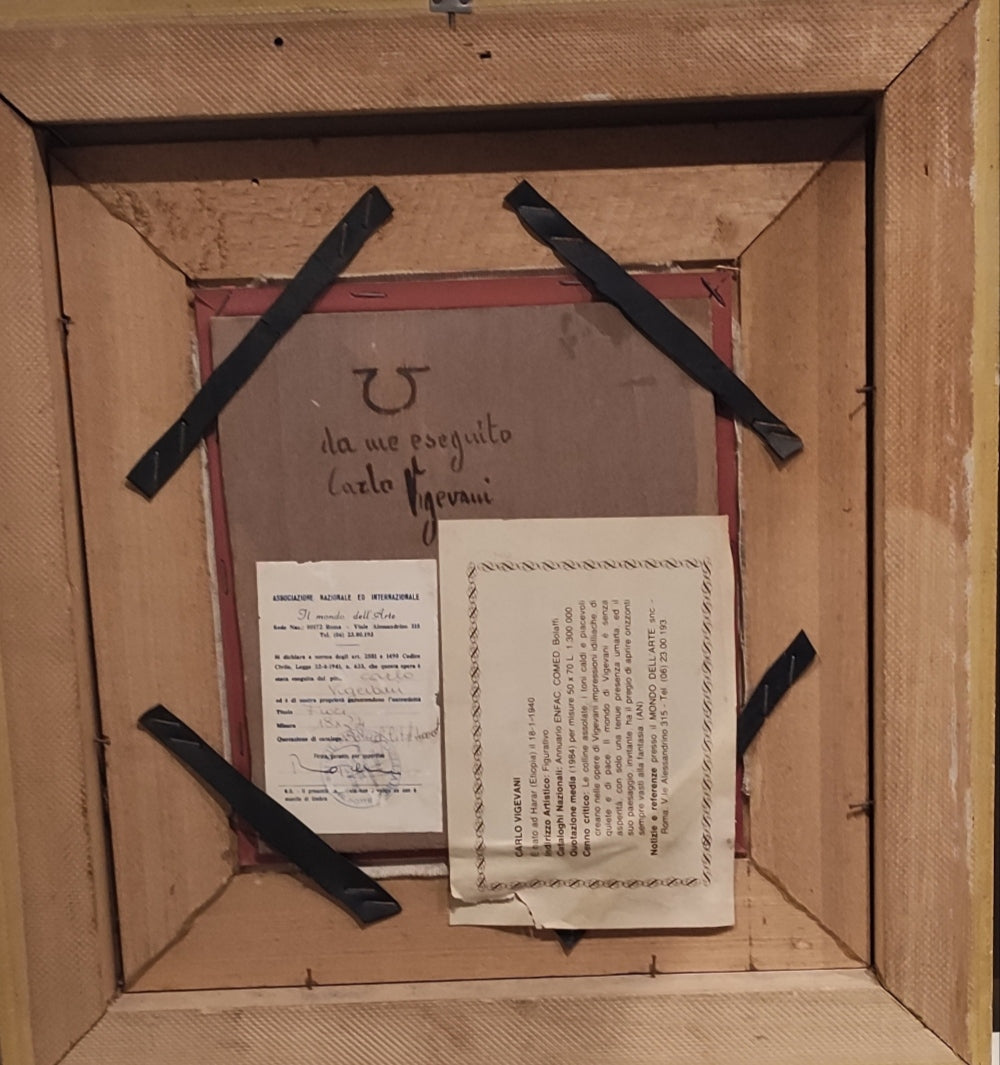 da me eseguito
Carlo Vigevani
ASSOCIAZIONE NAZIONALE ED INTERNAZIONALE
Il mondo dell'Arte
Sede Naz.: 00172 Roma - Viale Alessandrino 315
Tel. (06) 23.00.193
Si dichiara a norma degli art. 2581 e 1490 Codice
Civile, Legge 22-4-1941, n. 633, che questa opera è
stata eseguita dal pitt. Carlo
Vigevani
ed è di nostra proprietà garantendone l'autenticità
Titolo Fiori
Misura
Quotazione di catalogo
CARLO VIGEVANI
È nato ad Harar (Etiopia) il 18-1-1940
Indirizzo Artistico: Figurativo
Cataloghi Nazionali: Annuario ENFAC, COMED, Bolaffi
Quotazione media (1984) per misure 50 x 70 L. 1.300.000
Cenno critico: Le colline assolate, i toni caldi e piacevoli
creano nelle opere di Vigevani impressioni idilliache, di
quiete e di pace. Il mondo di Vigevani è senza
asperità, con solo una tenue presenza umana, ed il
suo paesaggio, invitante, ha il pregio di aprire orizzonti
sempre vasti alla fantasia. (AN)
Notizie e referenze presso il MONDO DELL'ARTE snc -
Roma: V.le Alessandrino 315 - Tel. (06) 23.00.193